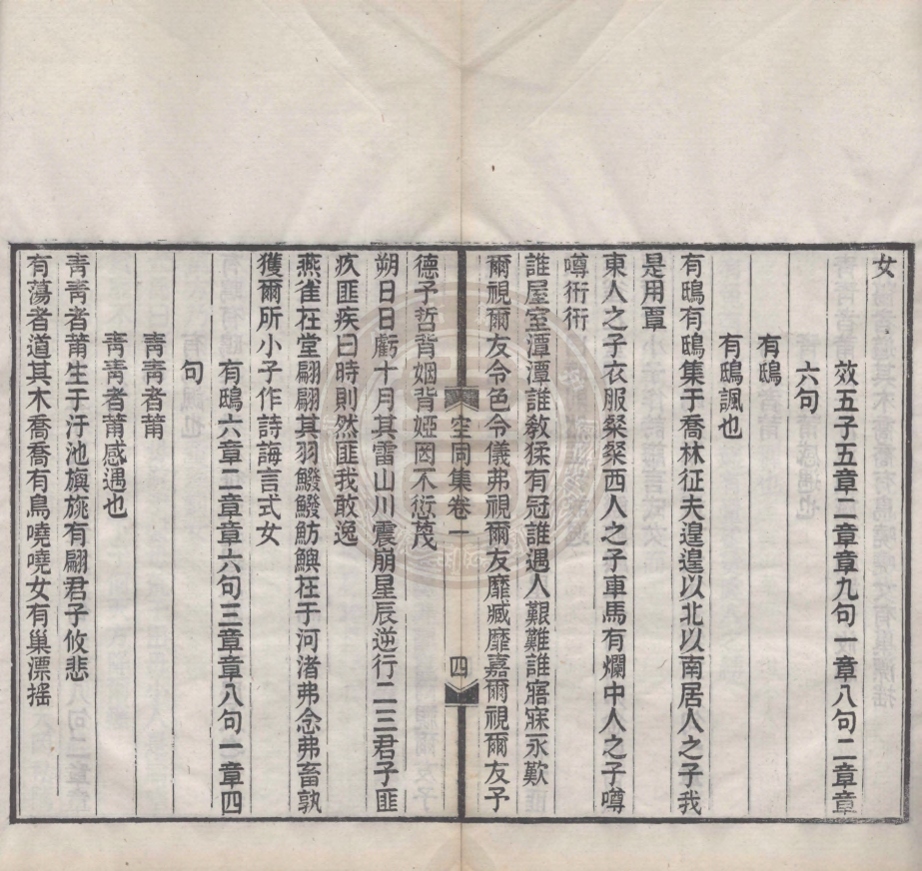 女
效五子五章二章章九句一章八句二章章
六句
有鴟
有鴟諷也
有鴟有鴟集于喬林征夫遑遑以北以南居人之子我
是用覃
東人之子衣服粲粲西人之子車馬有爛中人之子噂
噂衎衎
誰屋室潭潭誰敎猱有冠誰遇人艱難誰寤寐永歎
爾視爾友令色令儀弗視爾友靡臧靡嘉爾視爾友予
空同集卷一
四
德予哲背姻背婭罔不愆茂
朔日日虧十月其雷山川震崩星辰逆行二三君子匪
疚匪疾曰時則然匪我敢逸
燕雀在堂翩翩其羽鱍鱍魴鱮在于河渚弗念弗畜孰
獲爾所小子作詩誨言式女
有鴟六章二章章六句三章章八句一章四
句
靑靑者莆
靑靑者莆感遇也
靑靑者莆生于汙池旟旐有翩君子攸悲
有蕩者道其木喬喬有鳥嘵嘵女有巢漂搖